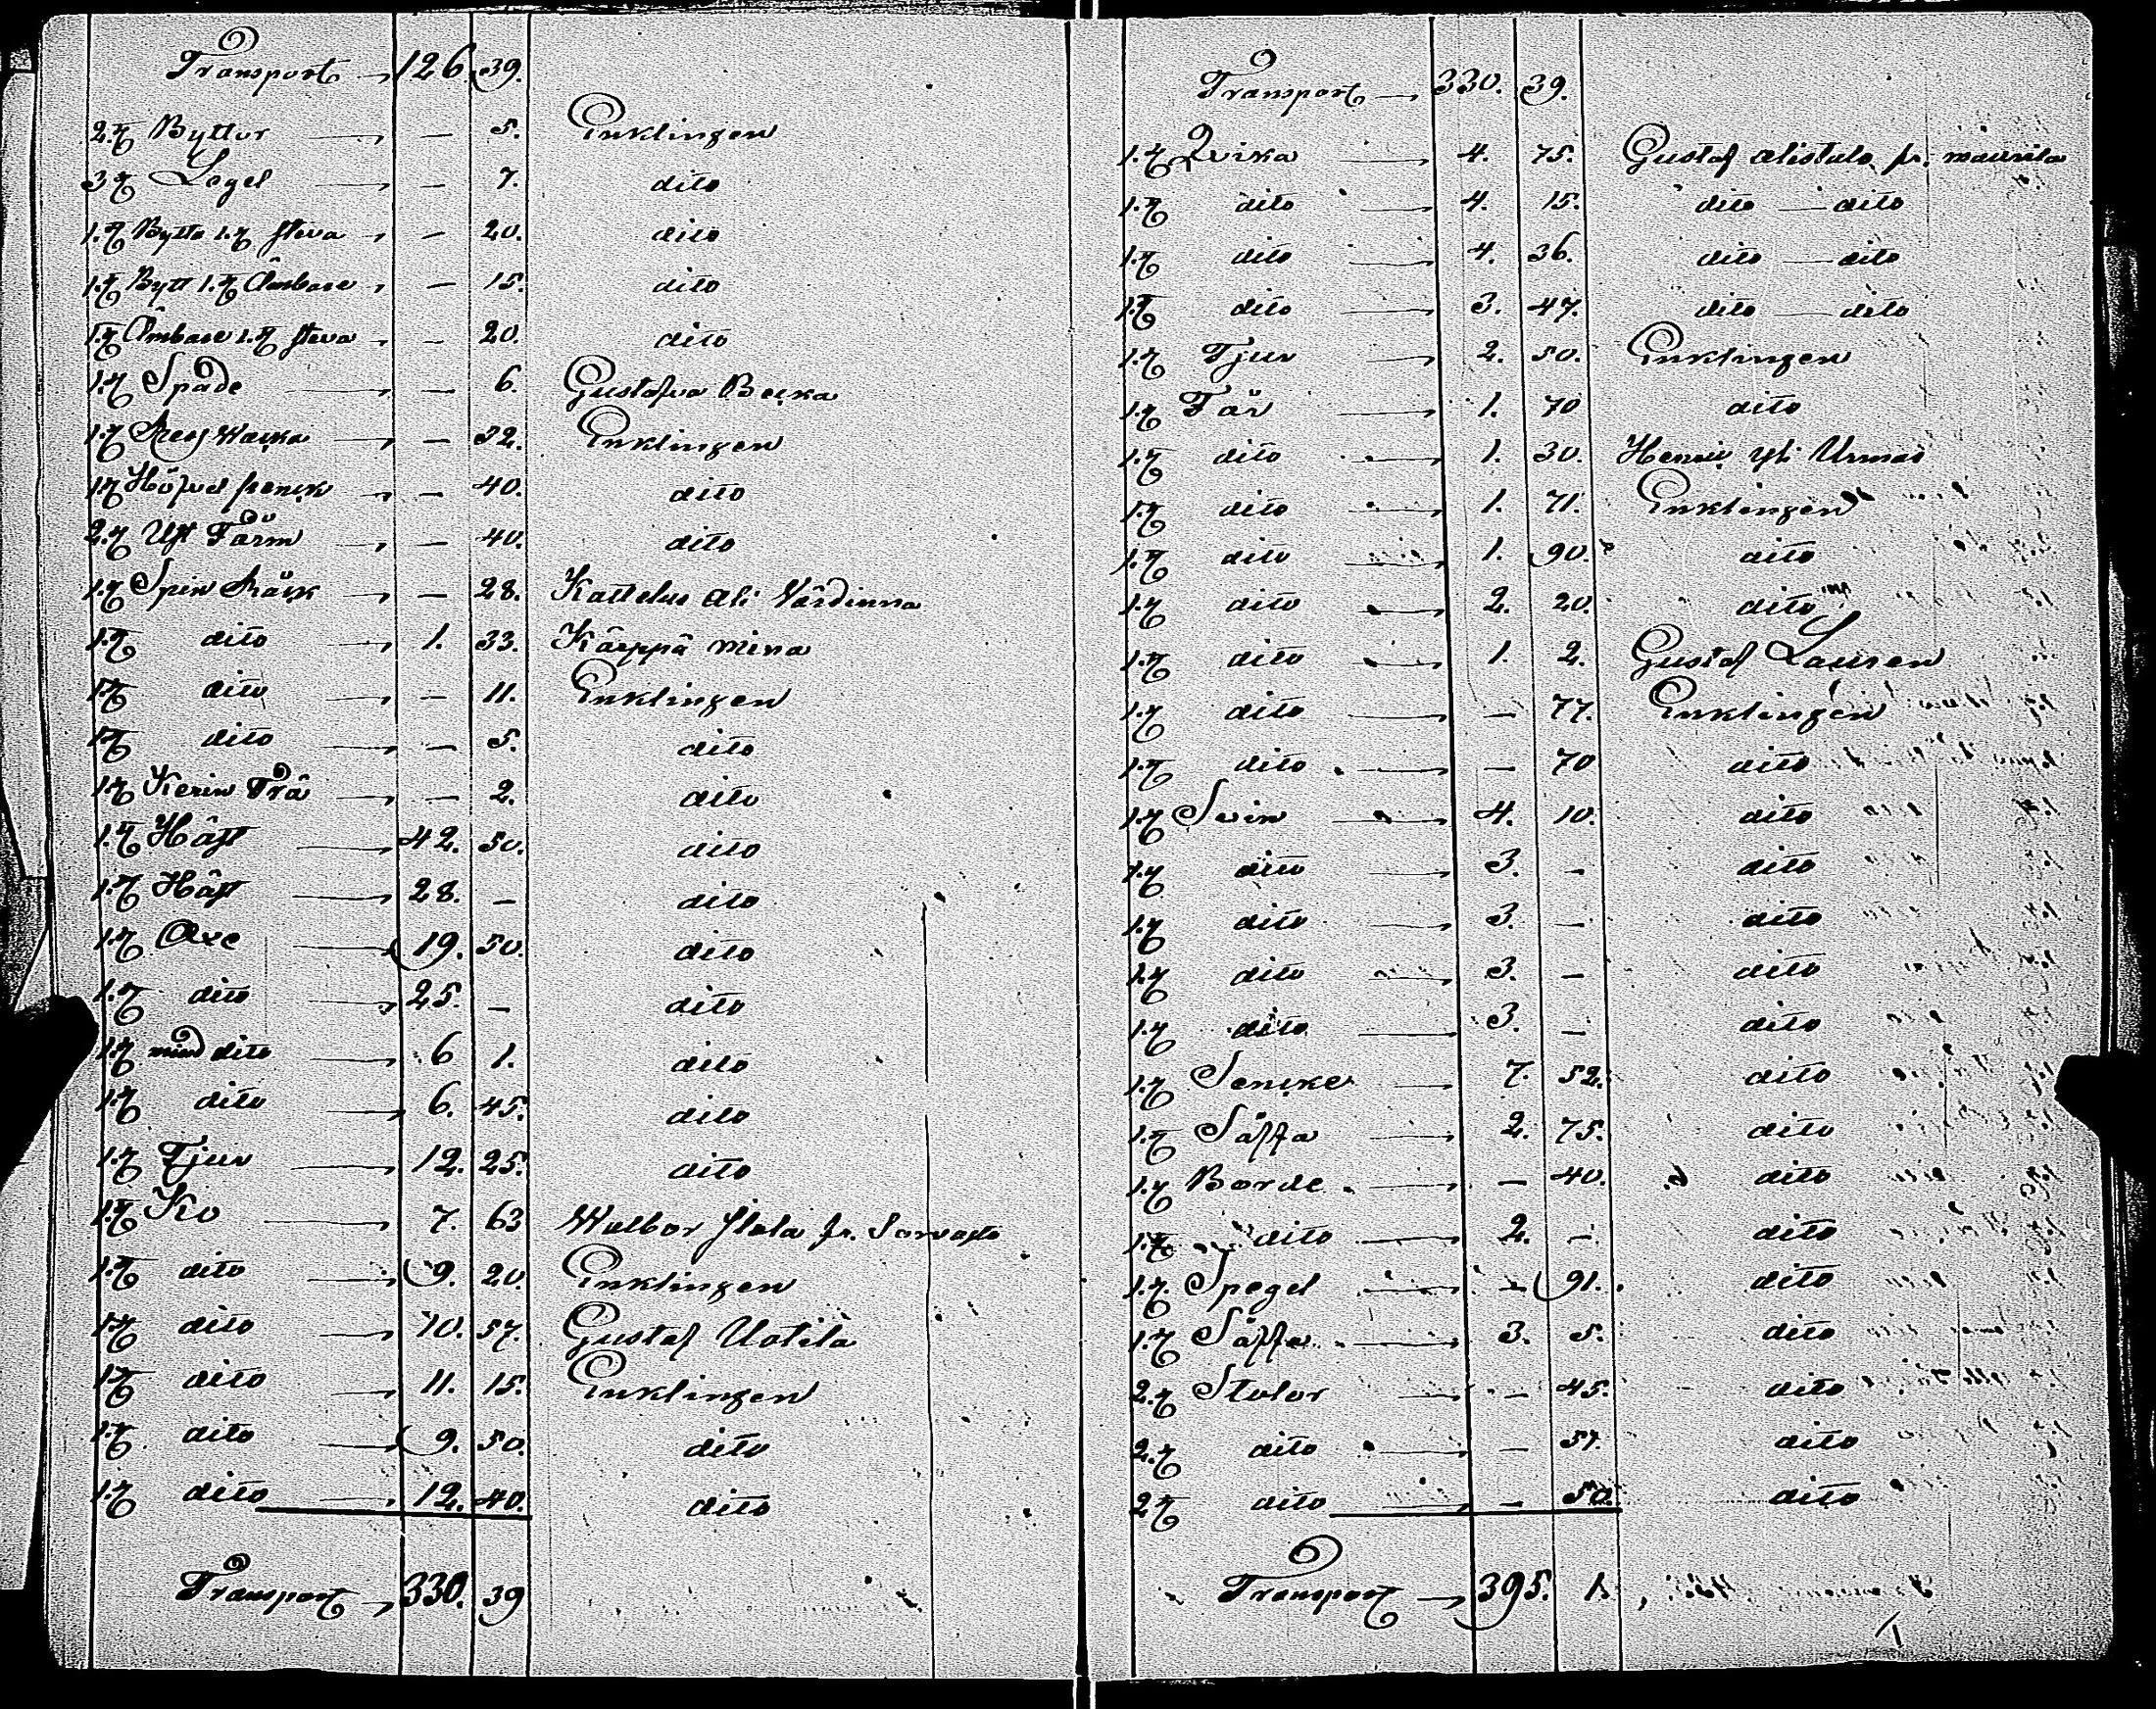 Transport 126 39.
2. st Byttor — 5. Enklingen
3 st Legel — 7. dito
1. st Bytta 1. st steva — 20. dito
1. st Bytt 1. st Ämbare — 15. dito
1. st Ämbare 1. st steva — 20. dito
1. st Spade — 6. Gustafva Becka
1. st — 32. Enklingen
1 st — 40. dito
2. st — 40. dito
1. st Spin Råck — 28. Kattelus Ali Värdinna
1. st dito 1. 33. Kärppä Mina
1. st dito — 11. Enklingen
1. st dito — 5. dito
1. st — 2. dito
1. st Häst 42. 50. dito
1. st Häst 28. — dito
1. st Oxe 19. 50. dito
1. st dito 25. — dito
1. st mind dito 6 1. dito
1. st dito 6. 45. dito
1. st Tjur 12. 25. dito
1. st Ko 7. 63 Walbor fr. Sorvasto
1. st dito 9. 20. Enklingen
1. st dito 10. 57. Gustaf Uotila
1. st dito 11. 15. Enklingen
1. st dito 9. 50. dito
1. st dito 12. 40. dito
Transport 330. 39
Transport 330. 39.
1. st Qvika 4. 75. Gustaf Alistalo fr. maurila
1. st dito 4. 15. dito — dito
1. st dito 4. 36. dito — dito
1. st dito 3. 47. dito — dito
1. st Tjur 2. 50. Enklingen
1. st Får 1. 70 dito
1. st dito 1. 30. Henric yli Urmas
1. st dito 1. 71. Enklingen
1. st dito 1. 90. dito
1. st dito 2. 20. dito
1. st dito 1. 2. Gustaf Lauren
1. st dito — 77. Enklingen
1. st dito — 70 dito
1. st Svin 4. 10. dito
1. st dito 3. — dito
1. st dito 3. — dito
1. st dito 3. — dito
1. st dito 3. — dito
1. st Sencke 7. 52. dito
1. st Såffa 2. 75. dito
1. st Borde — 40. dito
1. st dito 2. — dito
1. st Spegel — 91. dito
1. st Såffa 3. 5. dito
2. st Stolar — 45. dito
2. st dito — 57. dito
2 st dito — 50. dito
Transport 395. 1.